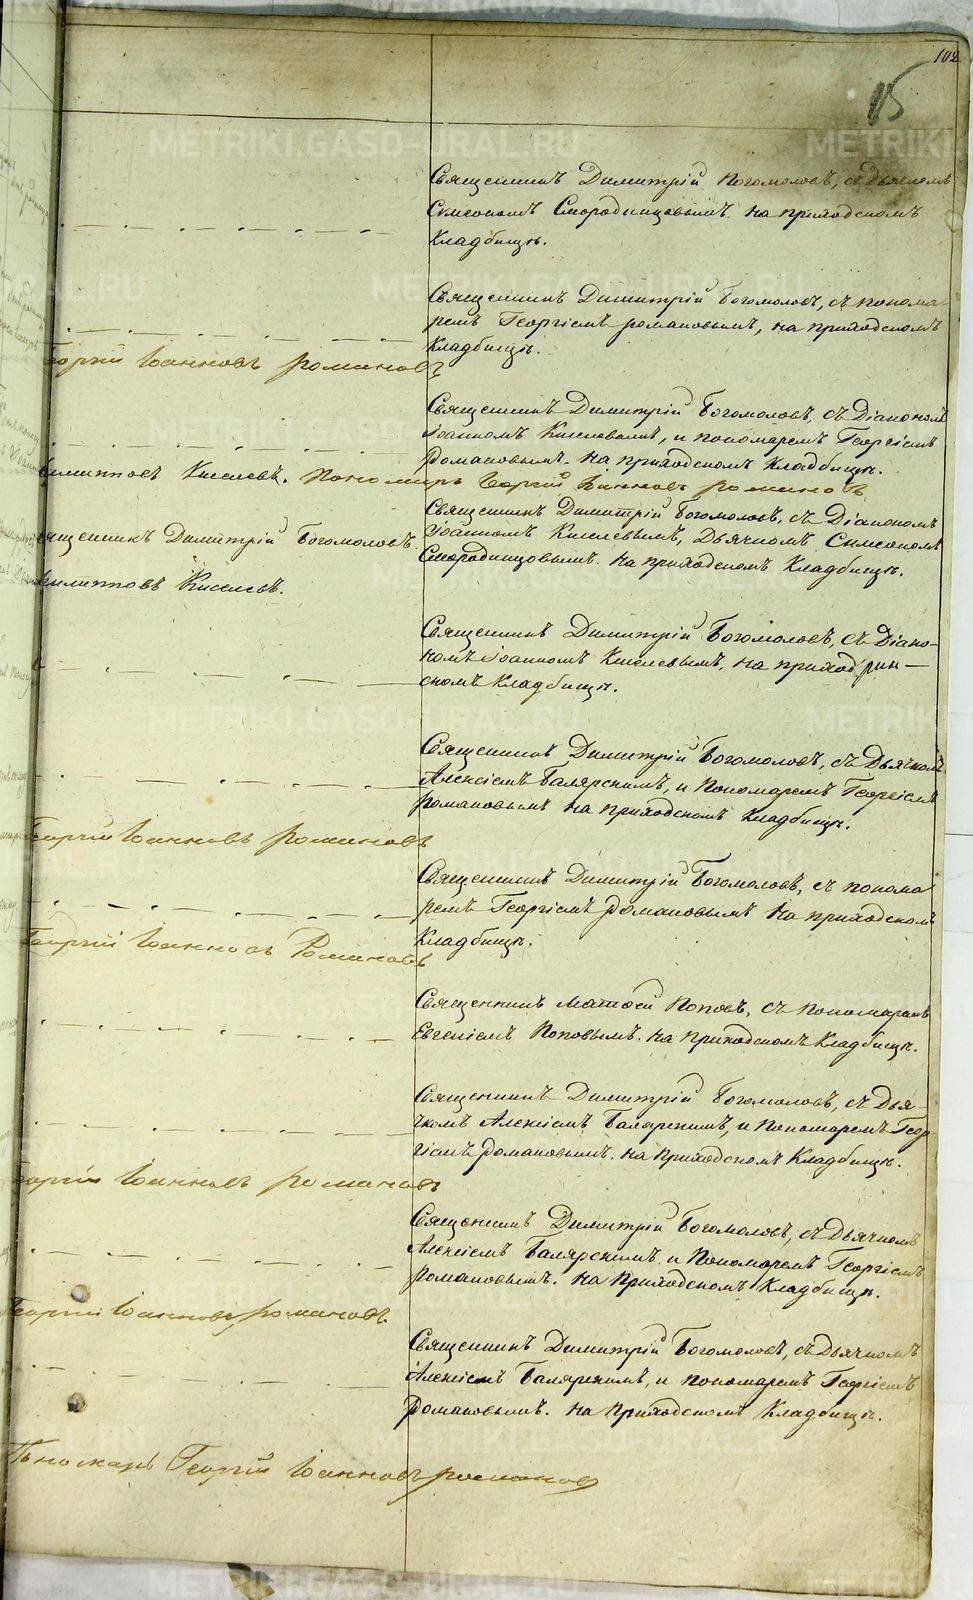 102
15
Священникъ Димитрій Богомоловъ, съ Дьячкомъ
Симеономъ Смородинцовымъ. на приходскомъ
Кладбищѣ.
Священникъ Димитрій Богомоловъ, съ понома-
ремъ Георгіемъ Романовымъ, на приходскомъ
Кладбищѣ.
Георгій Іоанновъ Романовъ
Священникъ Димитрій Богомоловъ, съ Діакономъ
Іоанномъ Киселевымъ, и пономаремъ Георгіемъ
Романовымъ. на приходскомъ Кладбищѣ.
Филипповъ Киселевъ. Пономарь Георгій Іоанновъ Романовъ
Священникъ Димитрій Богомоловъ, съ Діакономъ
Іоанномъ Киселевымъ, Дьячкомъ Симеономъ
Смородинцовымъ. на приходскомъ Кладбищѣ.
Священникъ Димитрій Богомоловъ.
Филипповъ Киселевъ.
Священникъ Димитрій Богомоловъ, съ Діако-
номъ Іоанномъ Киселевымъ, на приход
скомъ Кладбищѣ.
Священникъ Димитрій Богомоловъ, съ Дьячкомъ
Алексіемъ Балярскимъ, и Пономаремъ Георгіемъ
Романовымъ на приходскомъ Кладбищѣ.
Георгій Іоанновъ Романовъ
Священникъ Димитрій Богомоловъ, съ понома
ремъ Георгіемъ Романовымъ на приходскомъ
Кладбищѣ.
Георгій Іоанновъ Романовъ
Священникъ Матѳей Поповъ, съ пономаремъ
Евгеніемъ Поповымъ. на приходскомъ Кладбищѣ.
Священникъ Димитрій Богомоловъ, съ Дья-
чкомъ Алексіемъ Балярскимъ, и Пономаремъ Геор
гіемъ Романовымъ. на Приходскомъ Кладбищѣ.
Георгій Іоанновъ Романовъ
Священникъ Димитрій Богомоловъ, съ Дьячкомъ
Алексіемъ Балярскимъ и Пономаремъ Георгіемъ
Романовымъ. на Приходскомъ Кладбищѣ.
Георгій Іоанновъ Романовъ.
Священникъ Димитрій Богомоловъ, съ Дьячкомъ
Алексіемъ Балярскимъ, и пономаремъ Георгіемъ
Романовымъ. на Приходскомъ Кладбищѣ.
Пономарь Георгій Іоанновъ Романовъ
METRIKI.GASO-URAL.RU